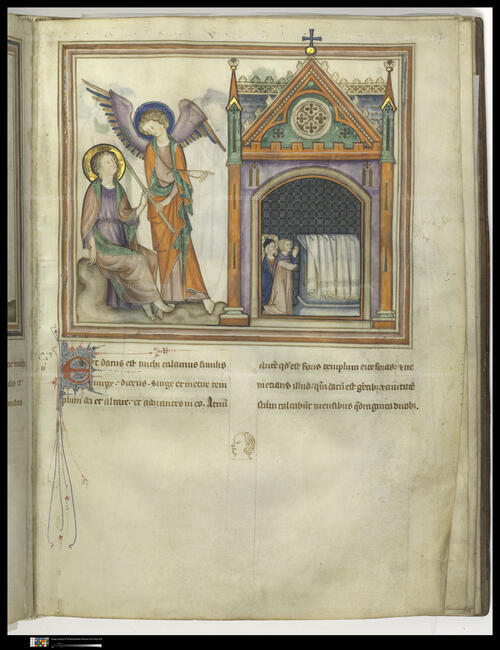 Et datus est michi calamus similis
uirge. dicens. Surge et metire tem
plum dei et altare. et adorantes in eo. Atriū
autē qđ est foris templum eice foras. et ne
metiaris illud. qm̄ datū est gentibꝫ. et ciuitatē
sc̄am calcabūt mensibus qͣdraginta duobꝫ.